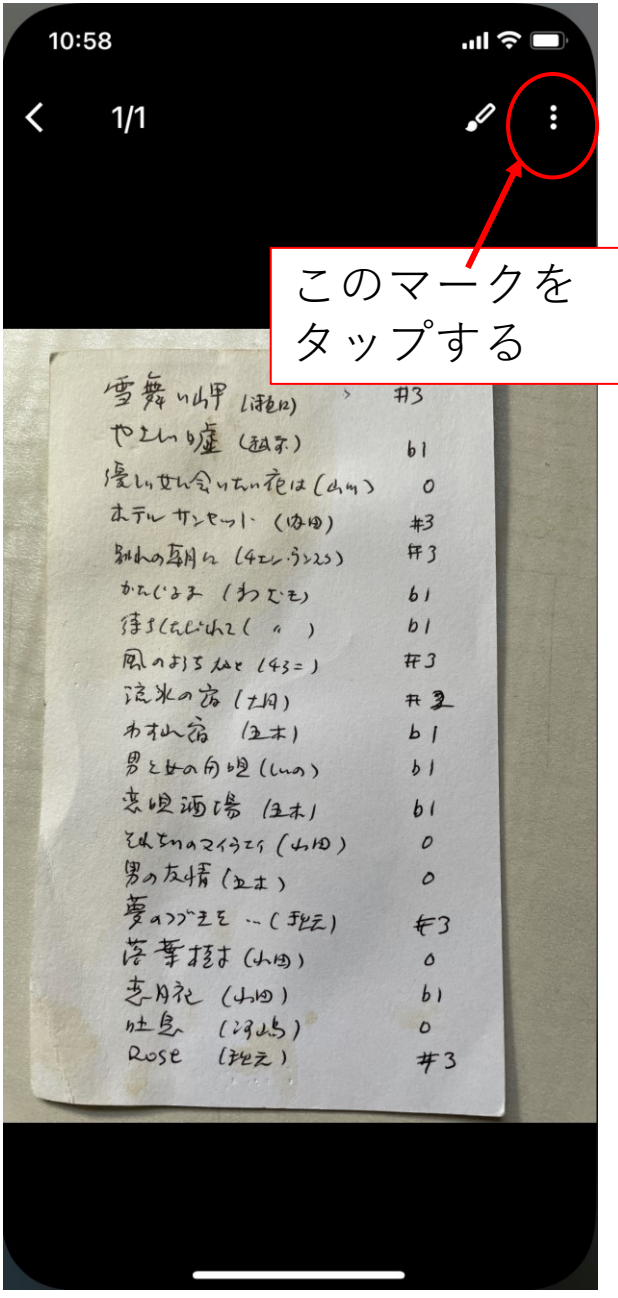 10:58
1/1
このマークを
タップする
雪舞い岬 #3
やさしい嘘 b1
優しい女に会いたい花は (山川) 0
ホテルサンセット (内田) #3
別れの朝に (チェン・ランスろ) #3
b1
待ちくたびれて ( 〃 ) b1
風のように #3
流氷の宿 (大月) # 3
わすれ宿 (五木) b1
男と女の b1
恋唄酒場 (五木) b1
それぞれのマイウエイ (山田) 0
男の友情 (五木) 0
夢のつづきを… (秋元) #3
落葉樹は (山田) 0
恋月記 (山田) b1
吐息 (河嶋) 0
Rose (秋元) #3